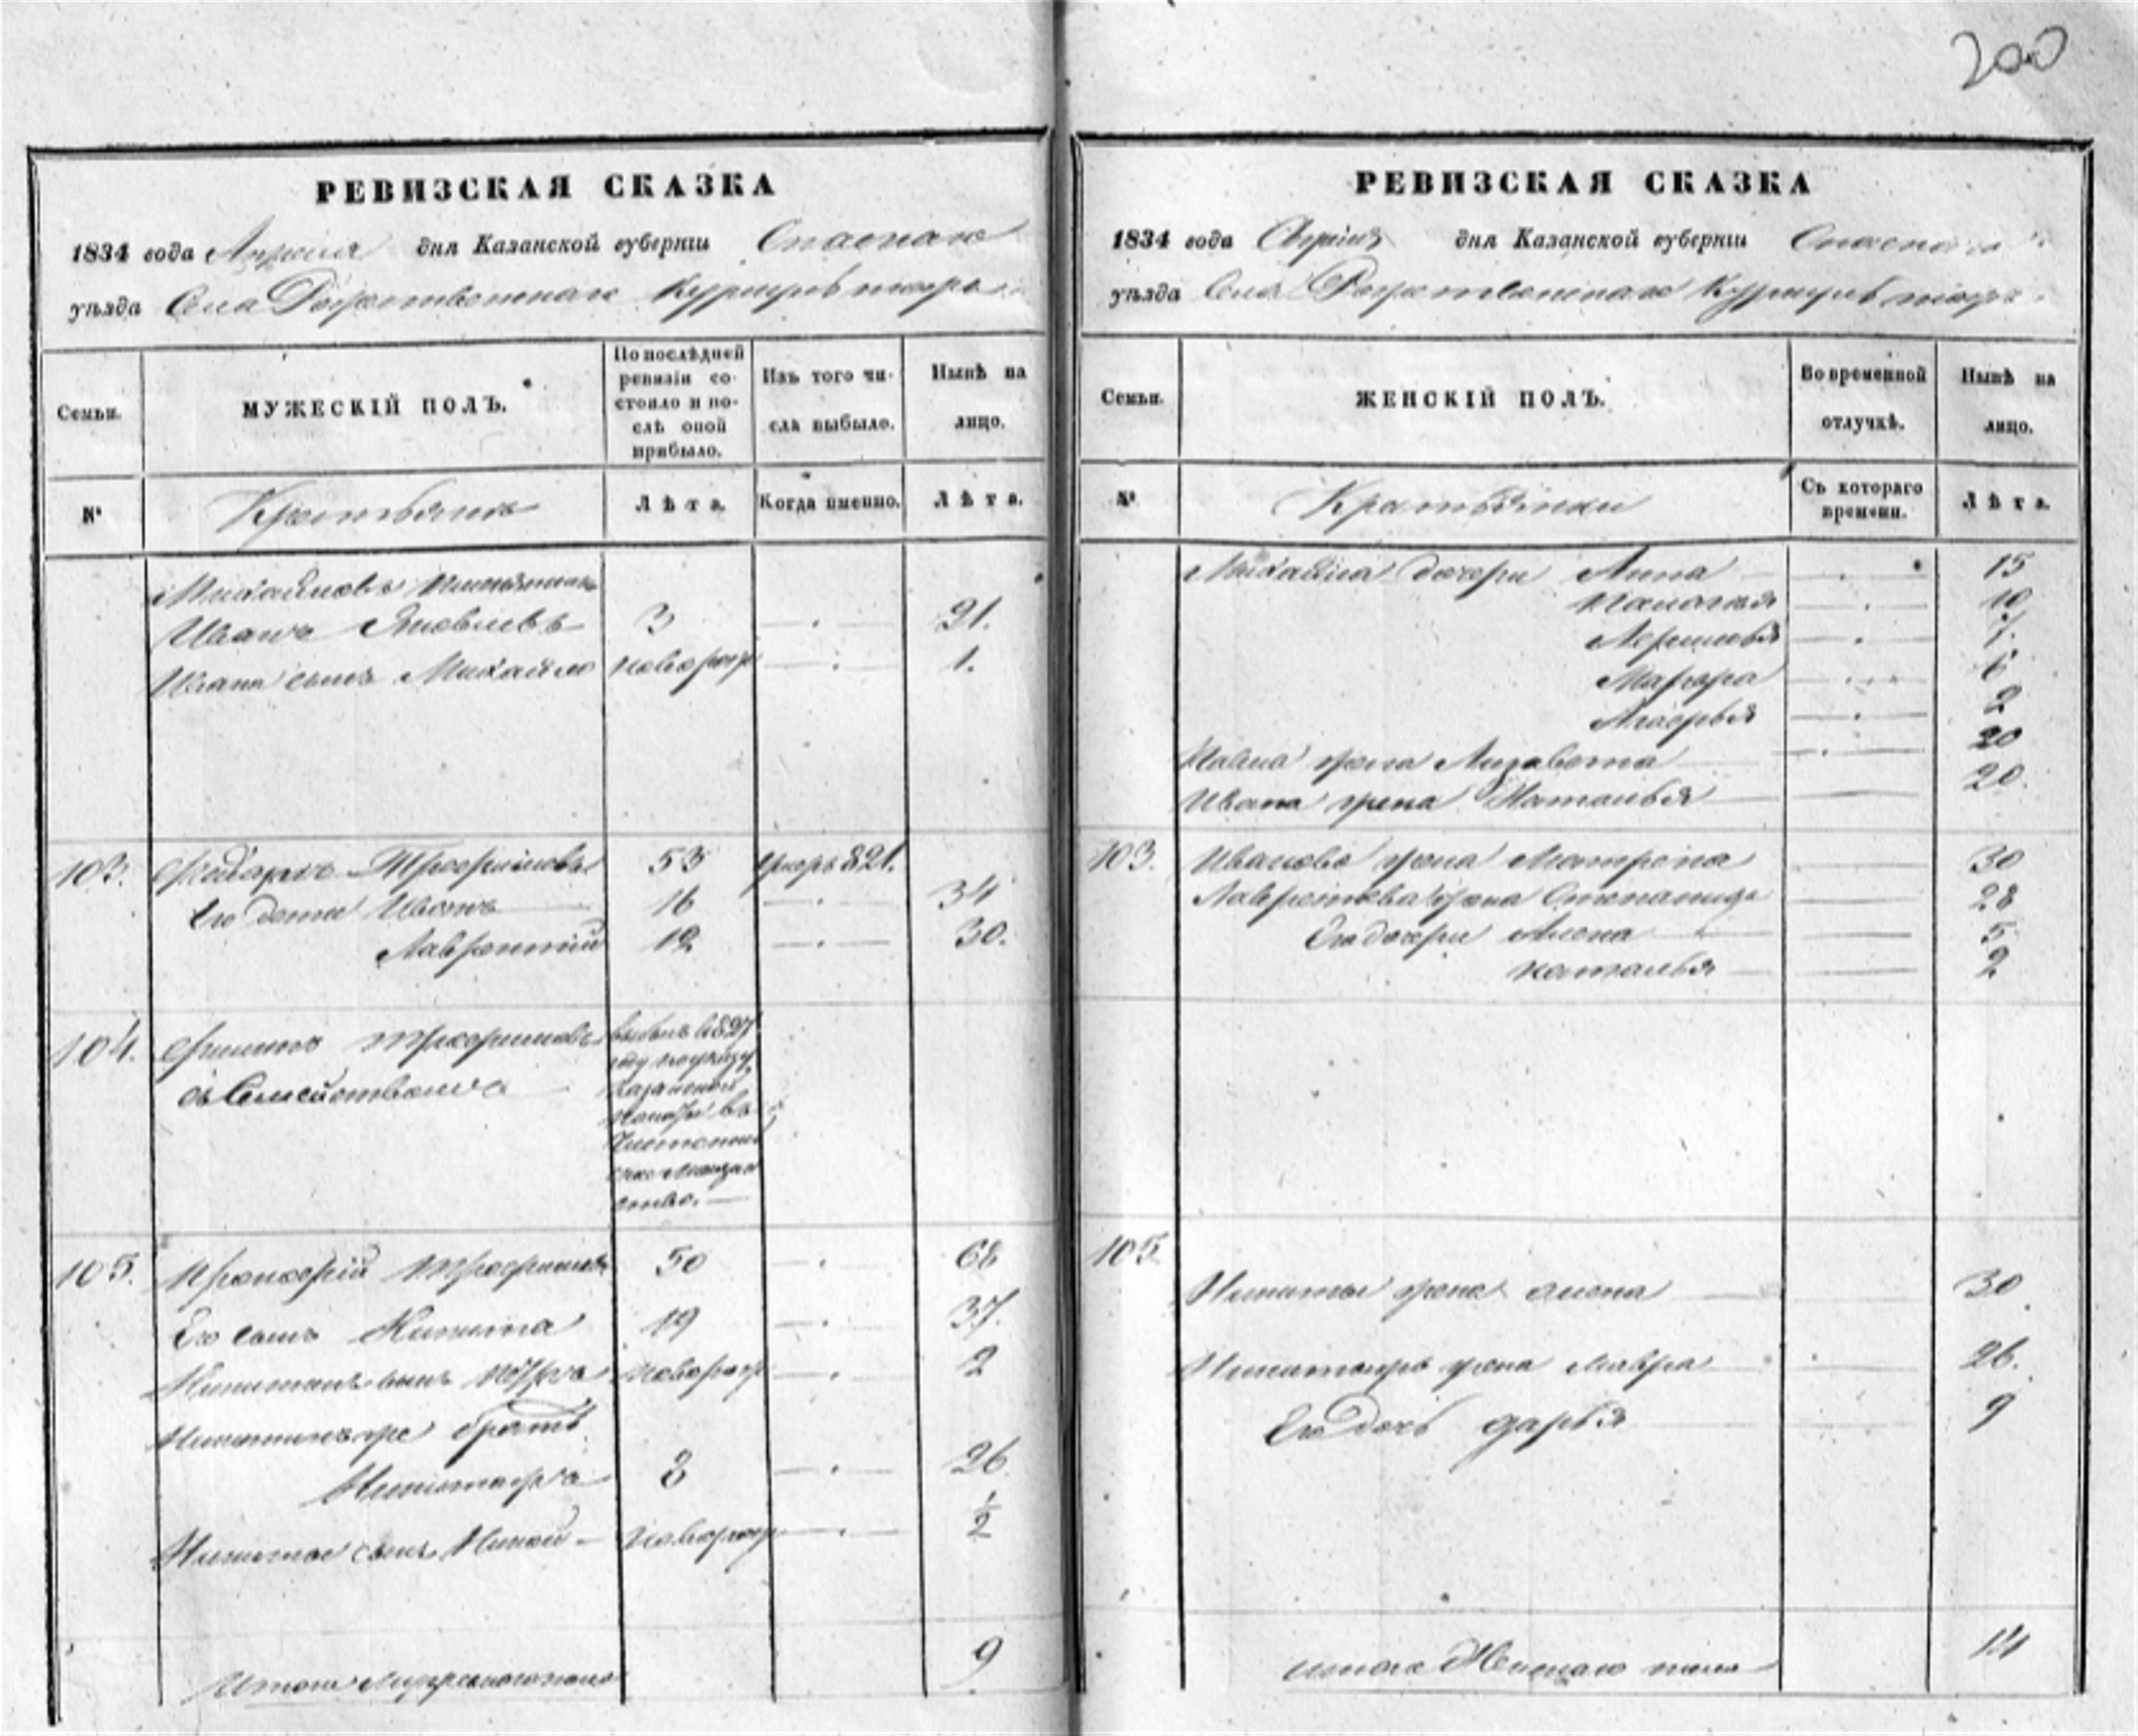 200
РЕВИЗСКАЯ СКАЗКА
1834 года Апреля дня Казанской губернии Спаскаго
уѣзда Села Рожественскаго
Семьи.
МУЖЕСКІЙ ПОЛЪ.
По послѣдней
ревизіи со-
стояло и по-
слѣ оной
прибыло.
Изъ того чи-
сла выбыло.
Нынѣ на
лицо.
№
Крестьянъ
Лѣта.
Когда именно.
Лѣта.
Михайловъ
Иванъ Яковлевъ 3 21.
Ивана сынъ Михайло новорож 1.
103. Трофимовъ 53 821.
Его дети Иванъ 16 34
Лаврентий 12 30.
104. Филипъ Трофимовъ
съ Семействомъ
выбылъ 1827
году по указу
Казанской
въ
ство.
105. Прокофій Трофимовъ 50 68
Его сынъ Никита 19 37.
Никитинъ сынъ Петръ новорож 2
Никитинъ же братъ
8 26
сынъ новорож 1/2
Итого Мужескаго пола 9
РЕВИЗСКАЯ СКАЗКА
1834 года дня Казанской губернии Спаскаго
уѣзда Села Рожественскаго
Семьи.
ЖЕНСКІЙ ПОЛЪ.
Во временной
отлучкѣ.
Нынѣ на
лицо.
№
Крестьянки
Съ котораго
времени.
Лѣта.
Михайла дочери Анна 15
Палагея 10
7.
Марфа 6
2
жена Лизавета 20
Ивана жена Наталья 20.
103. Иванова жена Матрена 30
Лаврентева жена Степанида 28
Его дочери Алена 5
Наталья 2
105.
Никиты жена Алена 30
жена Мавра 26.
Его дочь Дарья 9
Итого Женскаго пола 14